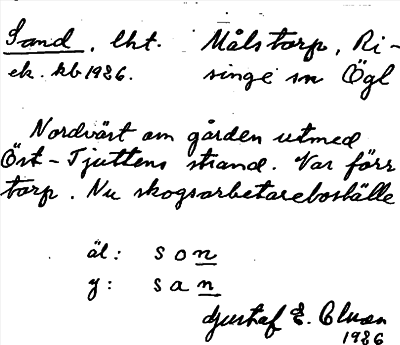 Sand, lht. Målstorp, Ri-
ek. kb 1926. singe sn Ögl
Nordväst om gården utmed
Öst-Tjuttens strand. Var förr
torp. Nu skogsarbetareboställe
äl: son
y: san
Gustaf E.
1926